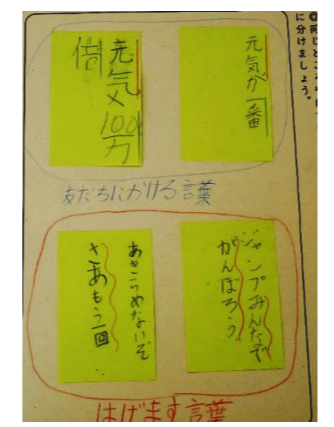 に分けましょう。
元気が一番
元気×100万
倍
友だちにかける言葉
ジャンプみんなで
がんばろう
あきらめないぞ
さあもう一回
はげます言葉